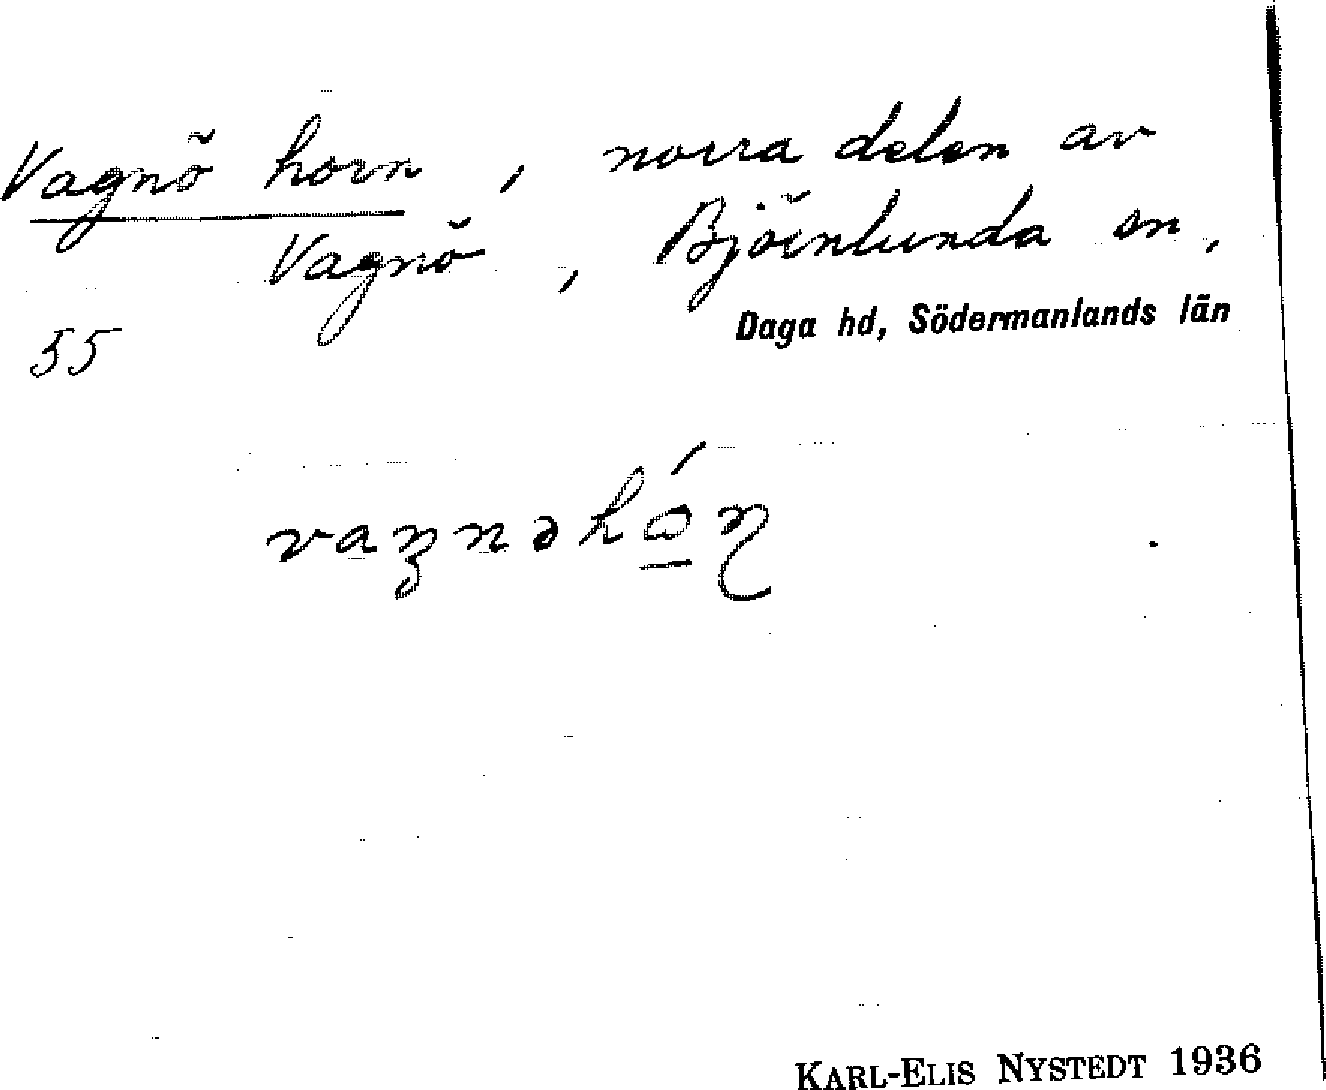 Vagnö horn, norra delen av
Vagnö, Björnlunda sn,
Daga hd, Södermanlands län
55
KARL-ELIS NYSTEDT 1936